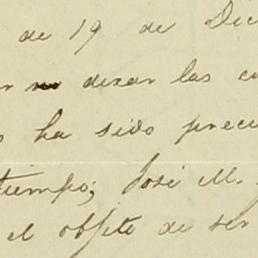 de 19 de Dic
no dexar las
ha sido preci
tiempo; José M.
el objeto de ser